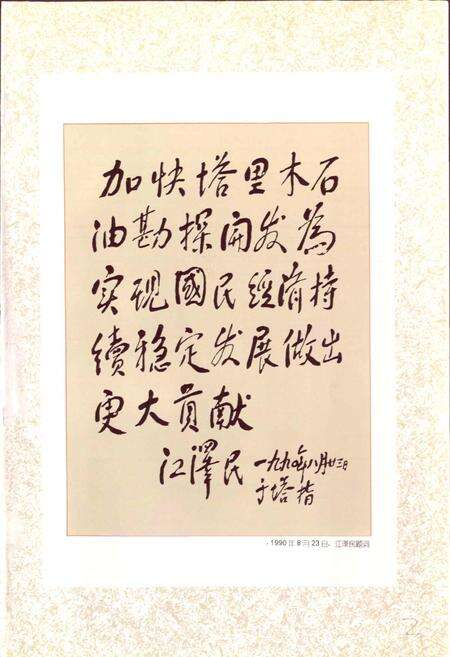 加快塔里木石
油勘探開发為
实现國民經済持
續稳定发展做出
更大貢献
江澤民 一九九〇年八月廿三日
于塔指
·1990年8月23日，江泽民题词
2